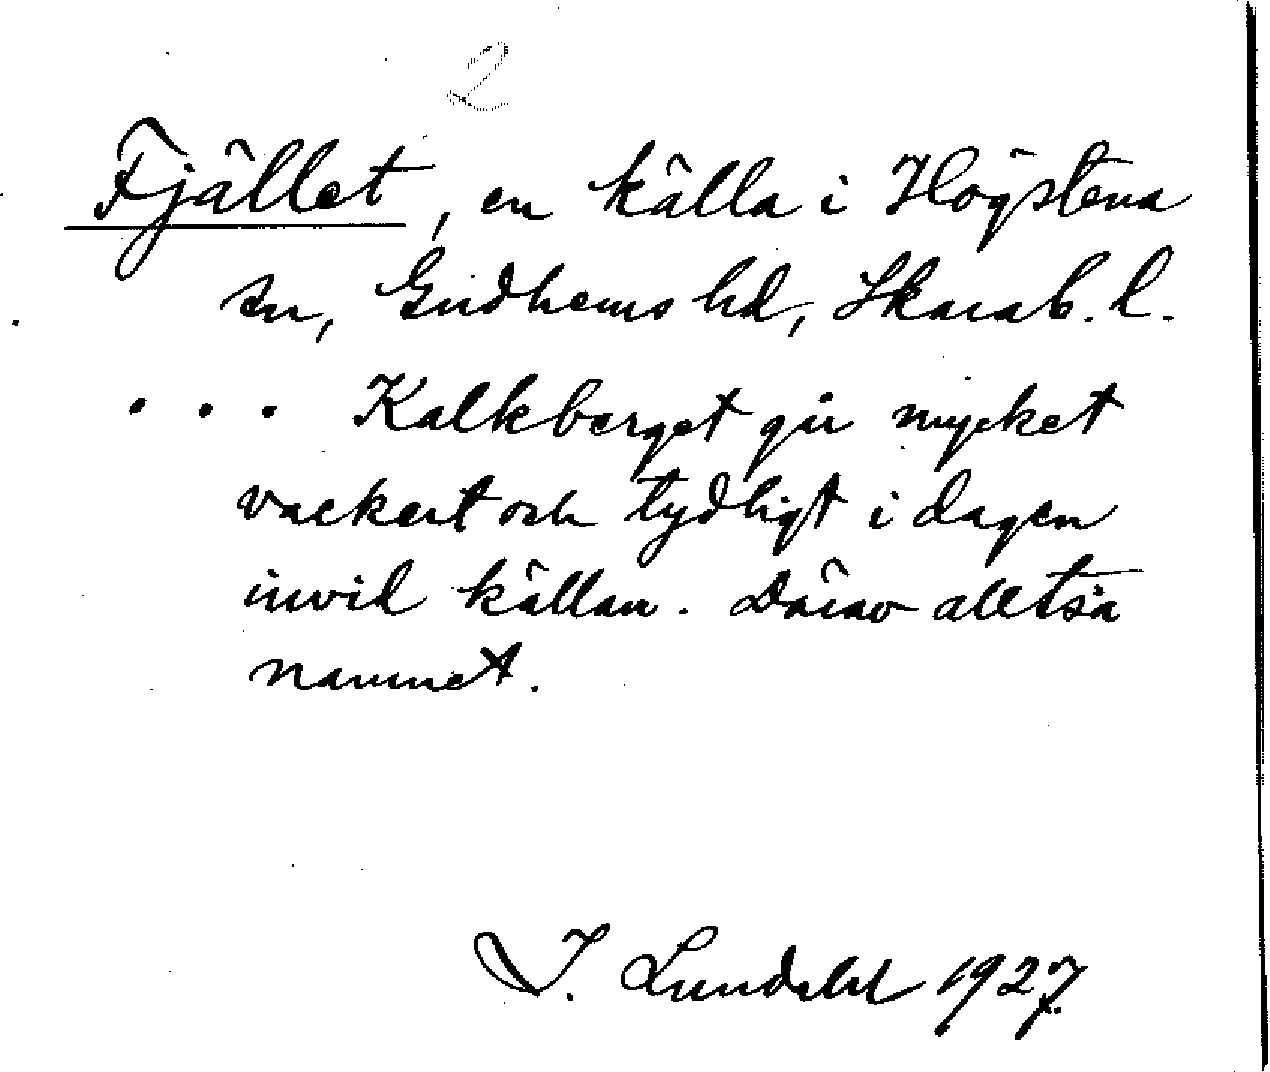 2
Fjället, en källa i Högstena
sn, Gudhems hd, Skarab. l.
. . . Kalkberget går mycket
vackert och tydligt i dagen
invid källan. Därav alltså
namnet.
I. Lundahl 1927.